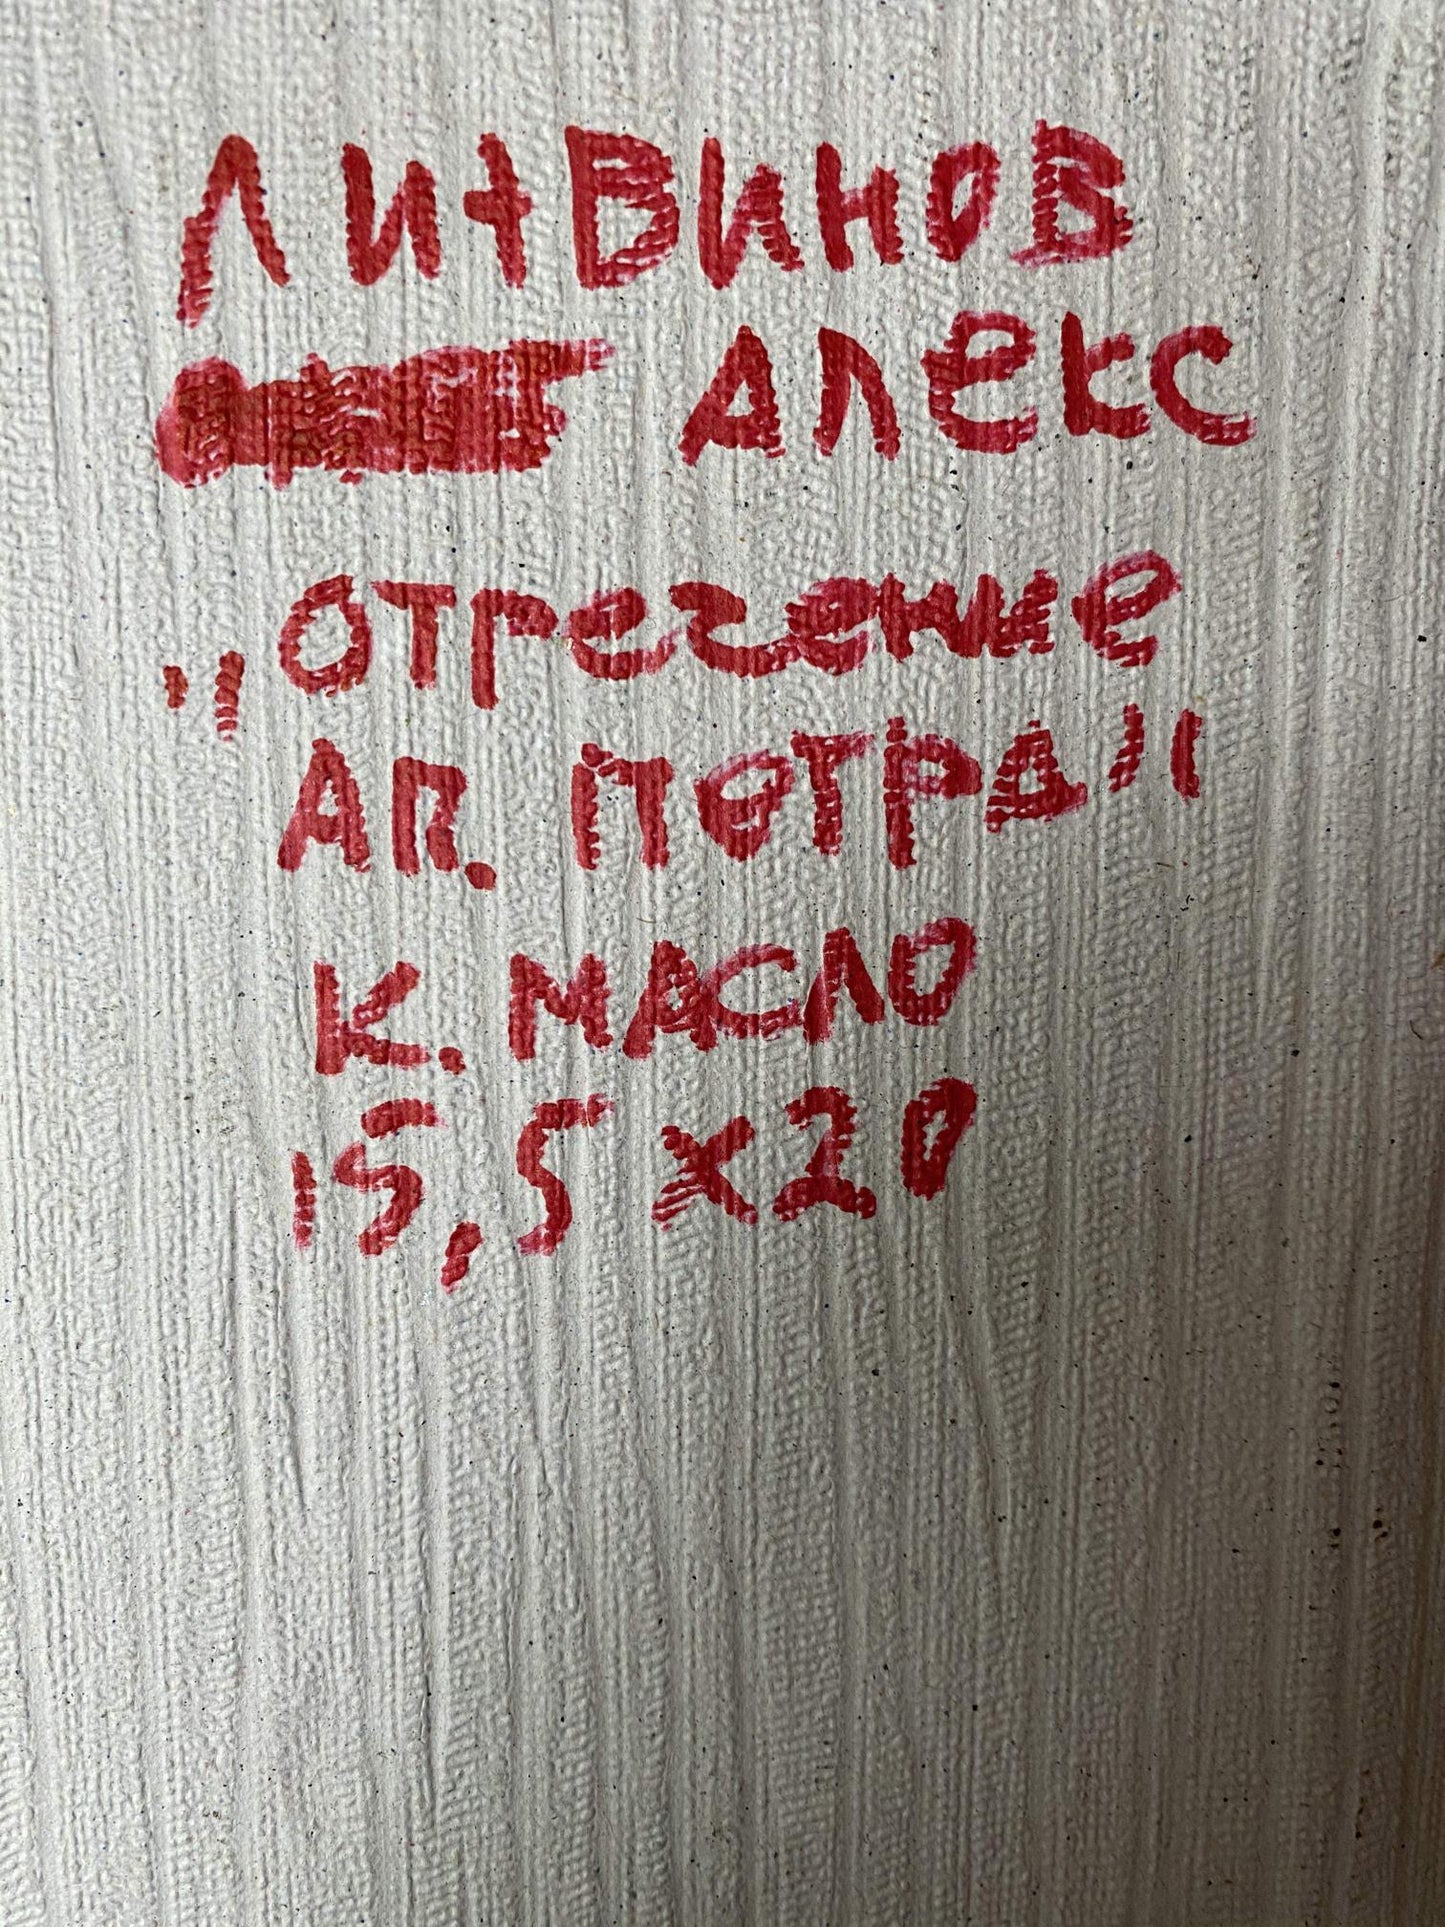 Литвинов
Алекс
"Отречение
Ап. Петра"
К. масло
15,5 x 20